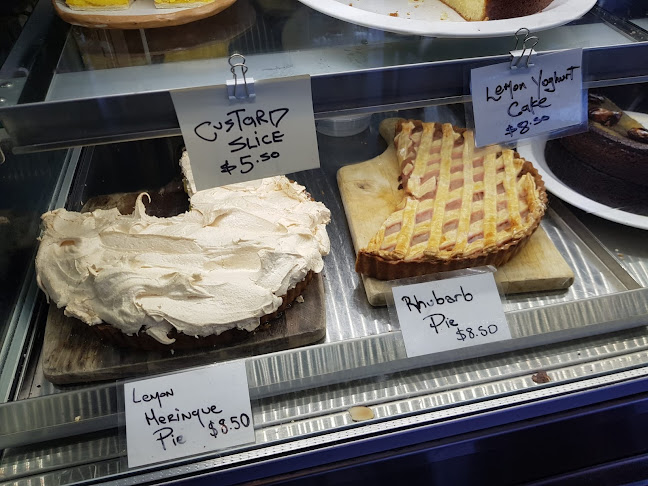 CUSTARD
SLICE
$5.50
Lemon Yoghurt
Cake
$8.50
Lemon
Meringue
Pie $8.50
Rhubarb
Pie $8.50